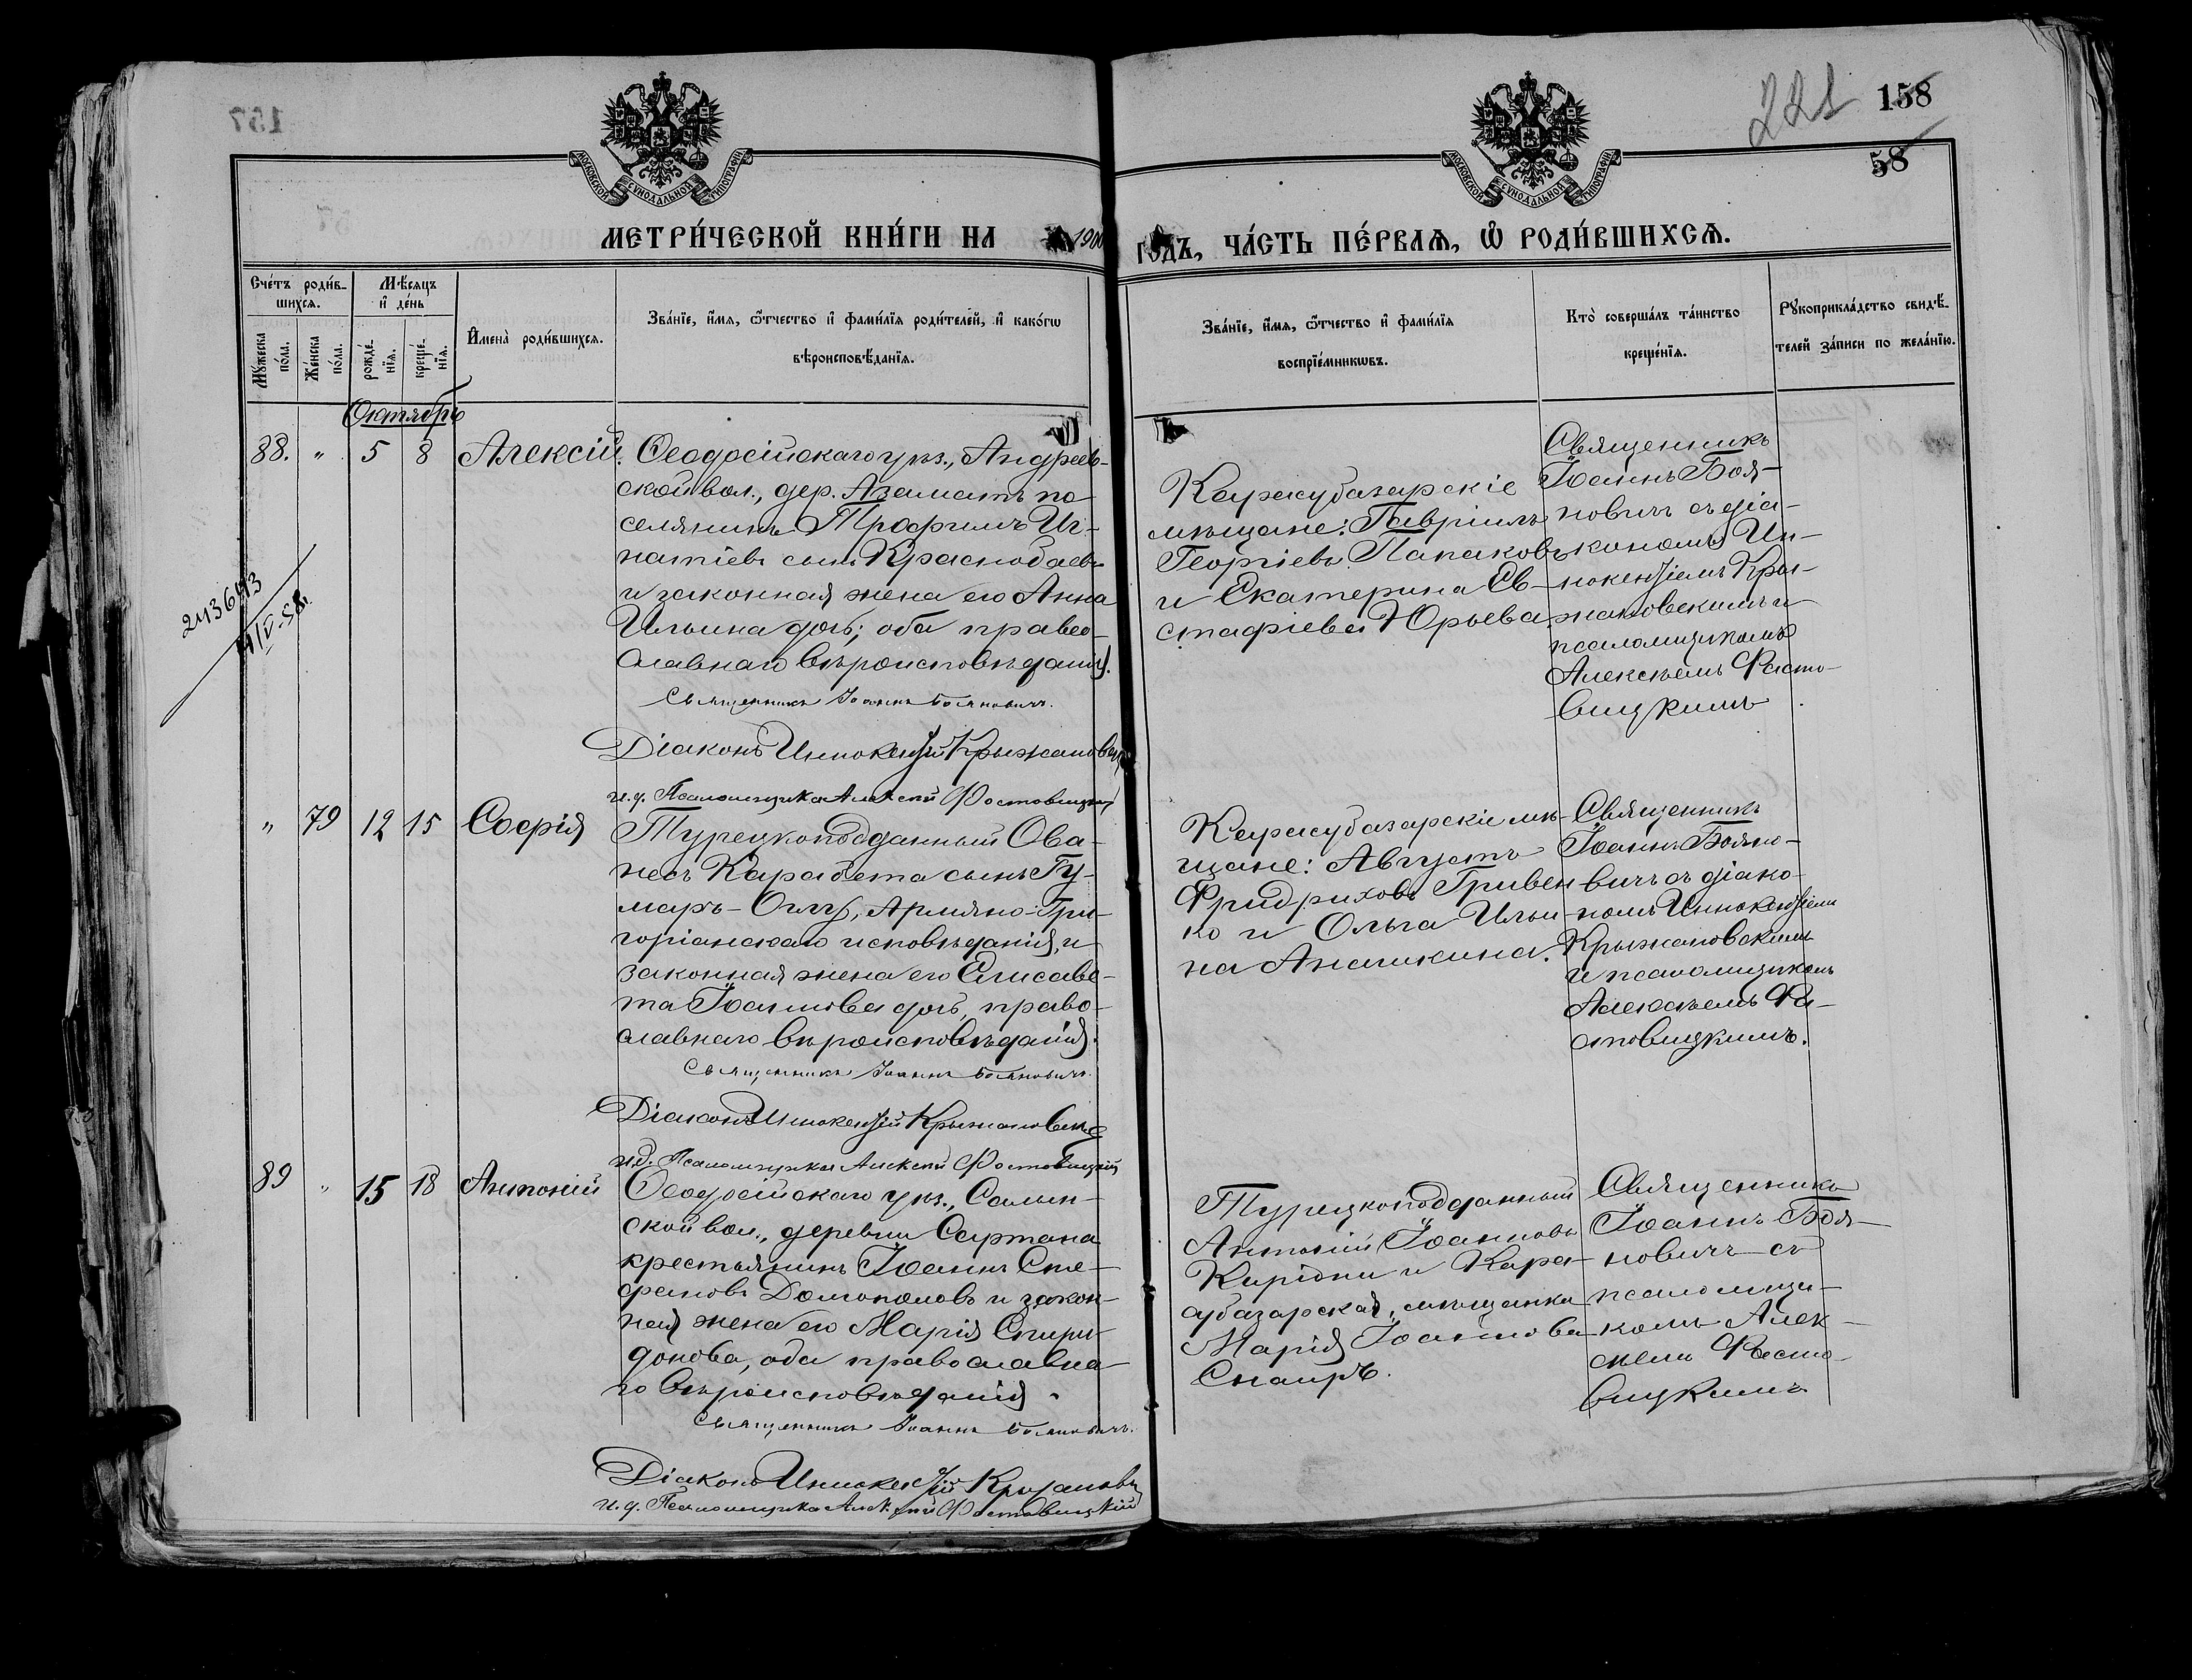 221
158
58
МОСКОВСКОЙ СѴНОДАЛЬНОЙ ТИПОГРАФІИ
МОСКОВСКОЙ СѴНОДАЛЬНОЙ ТИПОГРАФІИ
МЕТРИ́ЧЕСКОЙ КНИ́ГИ НА 1900
ГОДЪ, ЧА́СТЬ ПЕ́РВАѦ, Ѽ РОДИ́ВШИХСѦ.
Сче́тъ роди́в-
шихсѧ.
Мѣ́сѧцъ
и҆ де́нь
Мꙋ́жеска
по́ла.
Же́нска
по́ла.
рожде́-
нїѧ.
креще́-
нїѧ.
И҆мена̀ роди́вшихсѧ.
Зва́нїе, и҆́мѧ, ѻ҆́тчество и҆ фами́лїѧ роди́телей, и҆ како́гѡ
вѣроисповѣ́данїѧ.
Зва́нїе, и҆́мѧ, ѻ҆́тчество и҆ фами́лїѧ
воспрїе́мникѡвъ.
Кто̀ соверша́лъ та́инство
креще́нїѧ.
Рꙋкоприкла́дство свидѣ́-
телей за́писи по жела́нїю.
Октябрь
88. " 5 8 Алексій.
Ѳеодосійскаго уѣз., Андреев-
ской вол., дер. Азаматъ по
селянинъ Трофимъ Иг-
натіевъ сынъ Краснобаевъ
и законная жена его Анна
Ильина дочь; оба правос-
лавнаго вѣроисповѣданія.
Священникъ Іоаннъ Бояновичъ.
Діаконъ Иннокентій Крыжановскій
и.д. Псаломщика Алексій Фастовицкій
Карасубазарскіе
мѣщане: Гавріилъ
Георгіевъ Папаковъ
и Екатерина Ев-
стафіева Юрьева
Священникъ
Іоаннъ Боя-
новичъ съ діа-
кономъ Ин-
нокентіемъ Кры-
жановскимъ и
псаломщикомъ
Алексѣемъ Фасто-
вицкимъ
" 79 12 15 Софія
Турецкоподданный Ова-
несъ Карабета сынъ Гу-
маръ-Оглу, Армяно-Гри-
горіанскаго исповѣданія, и
законная жена его Елисаве-
та Іоаннова дочь, право-
славнаго вѣроисповѣданія.
Священникъ Іоаннъ Бояновичъ.
Діаконъ Иннокентій Крыжановскій
и.д. Псаломщика Алексій Фастовицкій
Карасубазарскіе мѣ-
щане: Августъ
Фридриховъ Гривен
ко и Ольга Ильи-
на Аналикина.
Священникъ
Іоаннъ Бояно-
вичъ съ діако-
номъ Иннокентіемъ
Крыжановскимъ
и псаломщикомъ
Алексѣемъ Фа-
стовицкимъ.
89 " 15 18 Антоній
Ѳеодосійскаго уѣз., Салын-
ской вол., деревни Сартана
крестьянинъ Іоаннъ Сте-
фановъ Долгополовъ и закон-
ная жена его Марія Спири-
донова, оба православна-
го вѣроисповѣданія.
Священникъ Іоаннъ Бояновичъ.
Діаконъ Иннокентій Крыжановскій
и.д. Псаломщика Алексій Фастовицкій
Турецкоподданный
Антоній Іоанновъ
Киріони и Кара-
субазарская мѣщанка
Марія Іоаннова
Снаиръ.
Священникъ
Іоаннъ Боя-
новичъ съ
псаломщи-
комъ Алек-
сѣемъ Фасто-
вицкимъ
2113643